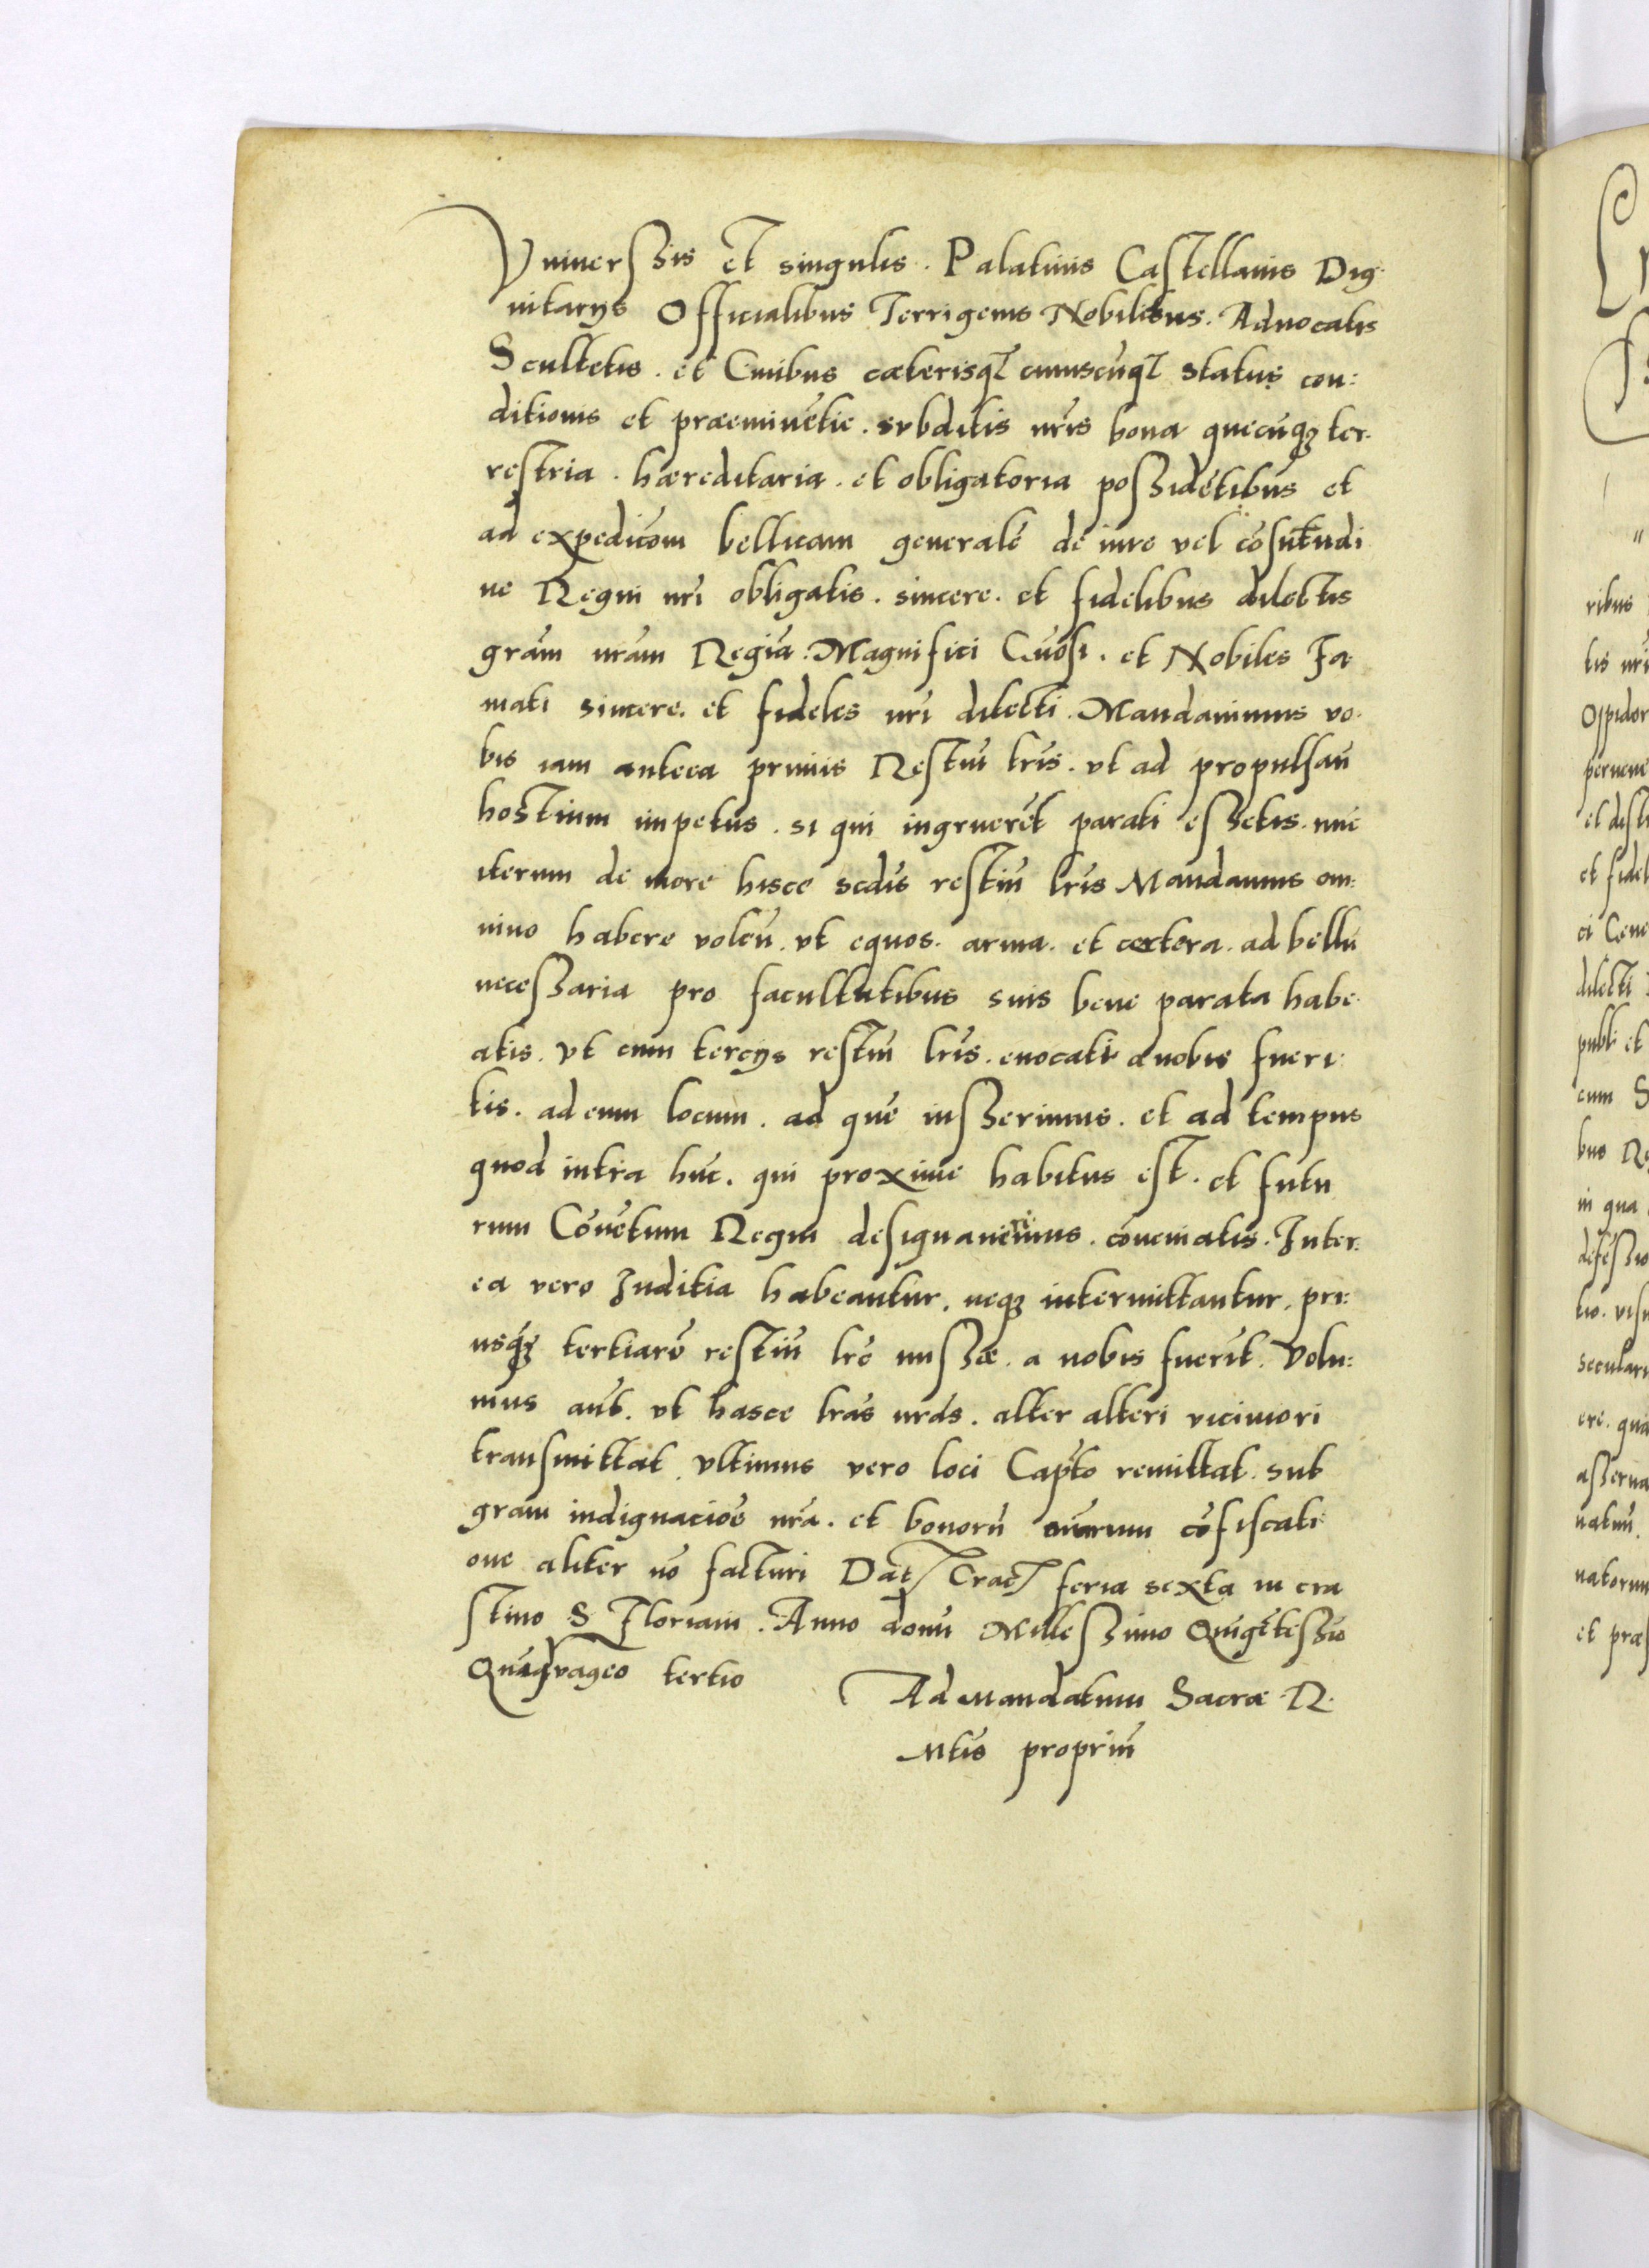 Vniversis et singulis. Palatinis Castellanis Dig-
nitarijs Officialibus Terrigenis Nobilibus. Aduocatis
Scultetis. et Ciuibus cæterisq cuiuscūq status con:
ditionis et præeminētie. subditis nr̄is bona quecūqꝫ ter-
restria. hæreditaria. et obligatoria possidētibus et
ad expedic̄om bellicam generalē de iure vel cōsuetudi
ne Regni nr̄i obligatis. sincere. et fidelibus dilectis
grām nrām Regiā. Magnifici Gn̄osi. et Nobiles Fa-
mati sincere. et fideles nr̄i dilecti. Mandauimus vo-
bis iam anteea primis Restiū lr̄is. vt ad propulsan̄
hostium impetus. si qui ingruerēt parati essetis. nūc
iterum de more hisce scd̄is restiū lr̄is Mandamus om:
nino habere volen̄. vt equos. arma. et cætera. ad bellū
necessaria pro facultatibus suis bene parata habe-
atis. vt cum tercijs restiū lr̄is. euocati a nobis fueri-
tis. ad eum locum. ad quē iusserimus. et ad tempus
quod intra hūc. qui proxime habitus est. et futu
rum Cōuētum Regni designauerimus. cōueniatis. Inter-
ea vero Iuditia habeantur. neqꝫ intermittantur. pri:
usq̄ꝫ tertiarē restiū lr̄e missæ. a nobis fuerīt. Volu:
mus aūt. vt hasce lrās nrās. alter alteri viciniori
transmittat. vltimus vero loci Cap̄to remittat. sub
graui indignaciōe nr̄a. et bonorū suarum cōfiscati
one aliter nō facturi Dat Crac feria sexta in cra
stino S Floriani. Anno domī Millessimo Quīgētessīo
Quadrageō tertio
Ad Mandatum Sacræ R.
Mtis propriū